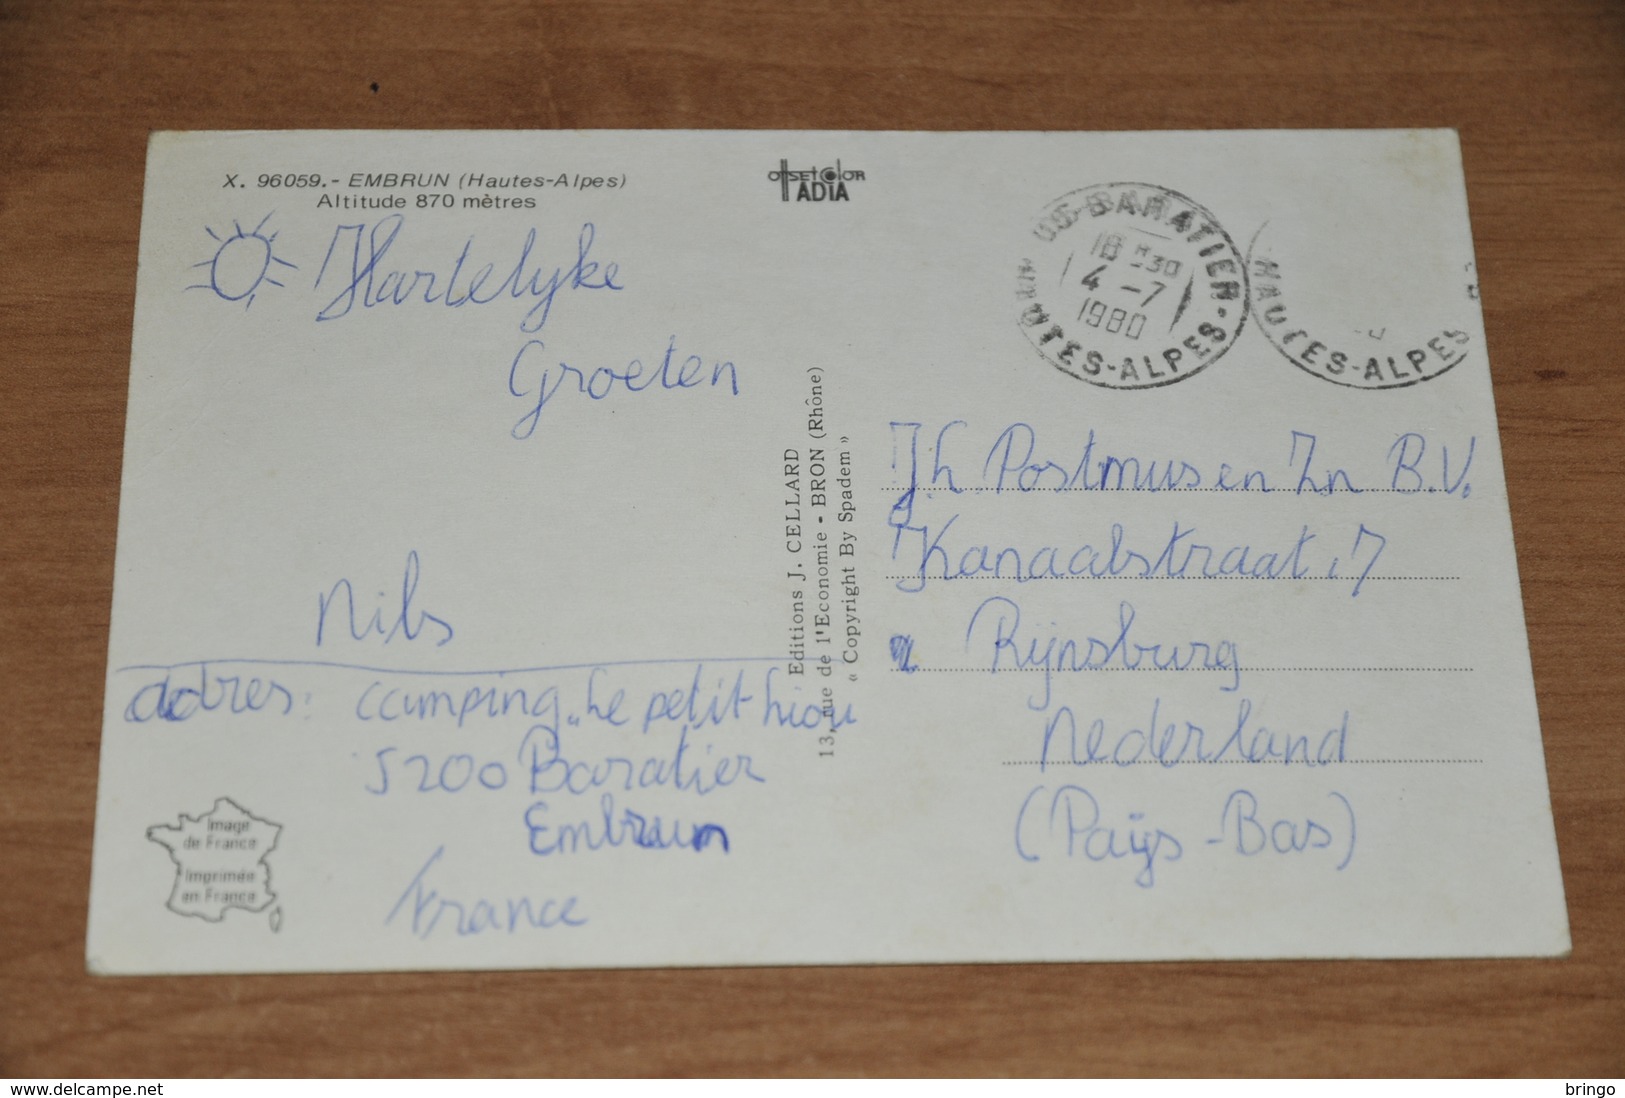 X. 96059.- EMBRUN (Hautes-Alpes)
Altitude 870 mètres
OffsetColor
ADIA
Hartelyke
Groeten
Nils
adres: camping „Le petit Liou
5200 Baratier
Embrun
France
Image
de France
Imprimée
en France
Editions J. CELLARD
13, rue de l'Economie - BRON (Rhône)
« Copyright By Spadem »
BARATIER
18 H30
4 -7
1980
HAUTES-ALPES
HAUTES-ALPES
J.h. Postmus en Zn B.V.
Kanaalstraat 17
Rijnsburg
Nederland
(Paÿs-Bas)
www.delcampe.net
bringo